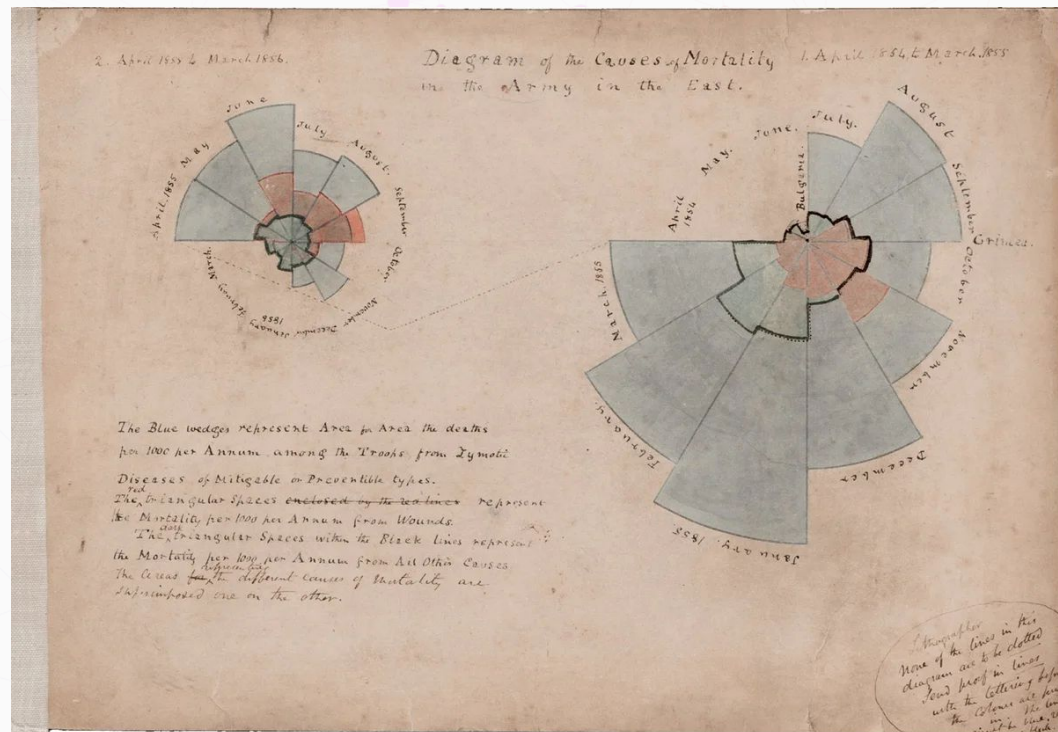 2. April 1855 to March 1856.
Diagram of the Causes of Mortality
in the Army in the East.
1. April 1854 to March 1855
June
July
August.
September
October
November
December
January
1856
February
March.
April 1855
May
April
1854
May.
June.
July.
August
September
October
November
December
January. 1855
February.
March. 1855
Bulgaria.
Crimea.
The Blue wedges represent Area for Area the deaths
per 1000 per Annum among the Troops from Zymotic
Diseases of Mitigable or Preventible types.
The red triangular Spaces enclosed by the red lines represent
the Mortality per 1000 per Annum from Wounds.
The dark triangular Spaces within the Black lines represent
the Mortality per 1000 per Annum from All Other Causes
The Areas for representing the different causes of Mortality are
superimposed one on the other.
Lithographer
None of the lines in this
diagram are to be dotted
Send proof in lines
with the lettering
the colours are
in the
must be blue,